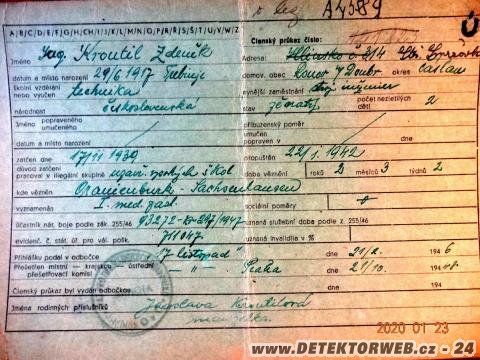 A4389
A B C D E F G H CH I J K L M N O P Q R S T U V W Z Členský průkaz číslo:
Jméno Ing. Kroutil Zdeněk Adresa:
datum a místo narození 29/6 1917 domov. obec okres Čáslav
školní vzdělání nebo vyučen technika nynější zaměstnání inženýr
národnost československá stav ženatý počet nezletilých dětí 2
Jméno popraveného umučeného příbuzenský poměr
datum a místo narození popraven umučen v dne 194
zatčen dne 17/11 1939 propuštěn 22/1. 1942
důvod zatčení pracoval v illegální skupině uzavř. vysokých škol doba věznění roků 2 měsíců 3 týdnů 2
kde vězněn Oranienburk - Sachsenhausen
vyznamenán I. med. zásl. sociální poměry:
Účastník nár. boje podle zák. 255/46 uznaná služební doba podle z. 255/46
evidenč. č. stát. úř. pro vál. pošk. 711047 uznaná invalidita v %
Přihlášky podal v odbočce "17 listopad" dne 21/2. 194 6
Přešetřen místní — krajskou — ústřední přešetřovací komisí Praha dne 21/10. 194 48.
Členský průkaz byl vydán odbočkou dne 194
Jména rodinných příslušníků Jaroslava Kroutilová
manželka
2020 01 23
www.DETEKTORWEB.cz - 24